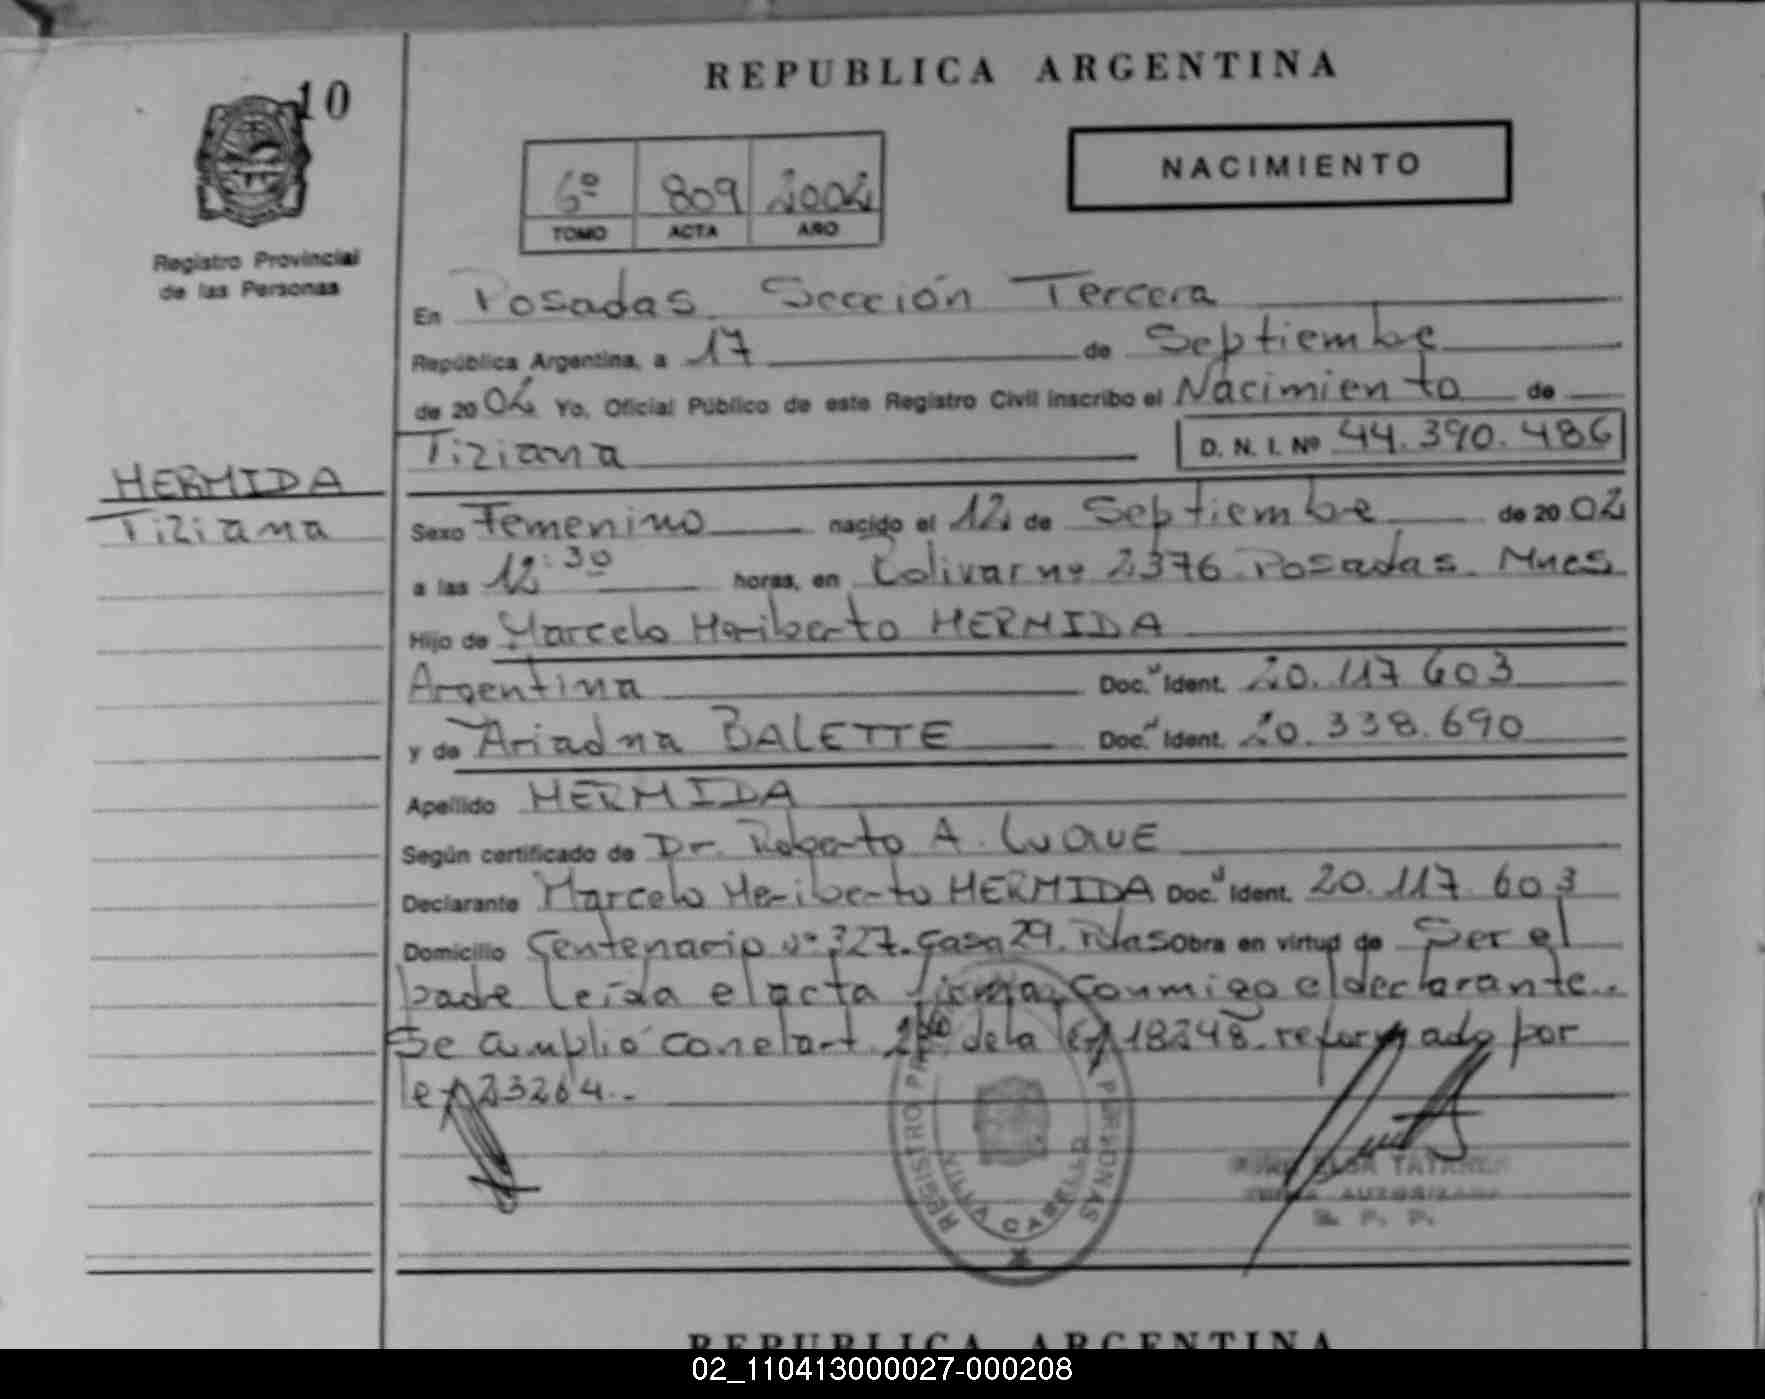 10
REPUBLICA ARGENTINA
NACIMIENTO
6º 809 2002
TOMO ACTA AÑO
Registro Provincial
de las Personas
En Posadas Sección Tercera
República Argentina, a 17 de Septiembre
de 2002 Yo, Oficial Público de este Registro Civil inscribo el Nacimiento de
Tiziana D. N. I. Nº 44.390.486
HERMIDA
Tiziana
Sexo Femenino nacido el 12 de Septiembre de 2002
a las 12:30 horas, en Bolivar nº 2376 Posadas. Mnes
Hijo de Marcelo Heriberto HERMIDA
Argentina Doc. Ident. 20.117.603
y de Ariadna BALETTE Doc. Ident. 20.338.690
Apellido HERMIDA
Según certificado de Dr. Roberto A. Luque
Declarante Marcelo Heriberto HERMIDA Doc. Ident. 20.117.603
Domicilio Centenario nº 327. Casa 29. Pdas Obra en virtud de Ser el
padre leída el acta firma conmigo el declarante..
Se amplió con el art. de la ley 18248 reformado por
ley 23264.-
REGISTRO PERSONAS
VILLA CABELLO
TATAREN
AUTORIZADA
R. P. P.
REPUBLICA ARGENTINA
02_110413000027-000208